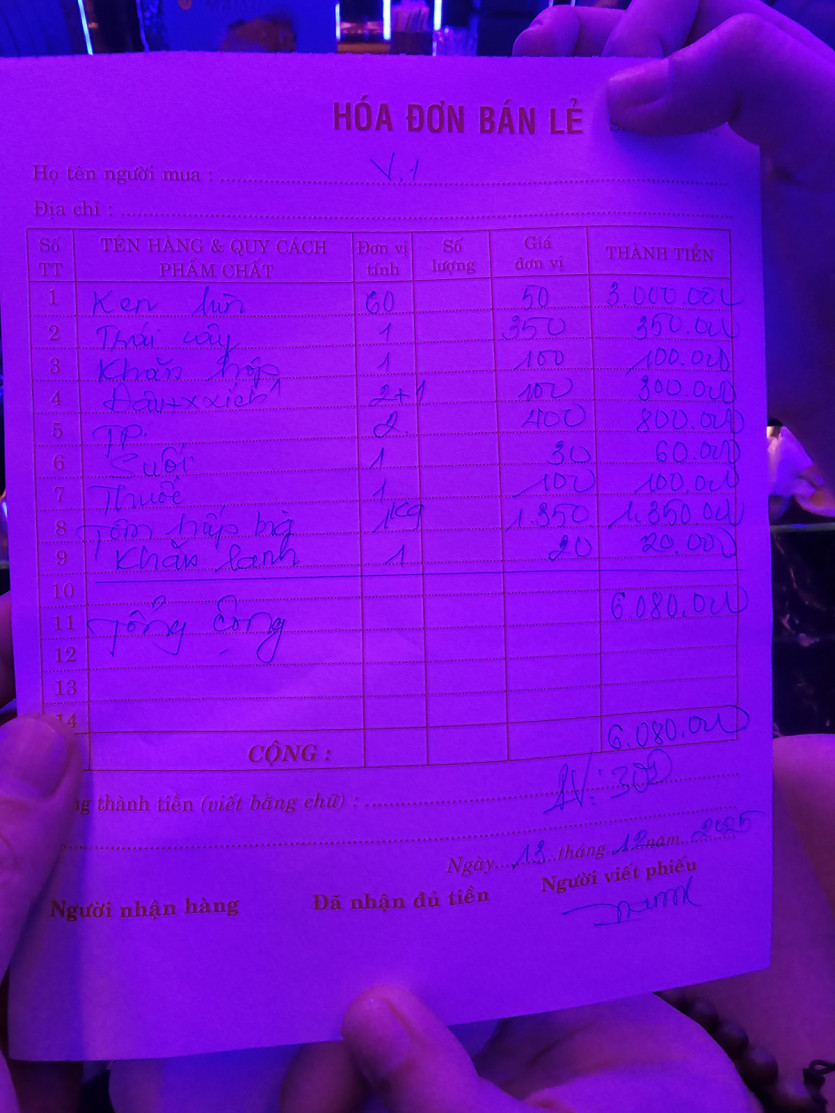 HÓA ĐƠN BÁN LẺ
Họ tên người mua : V.1
Địa chỉ :
Số TT TÊN HÀNG & QUY CÁCH PHẨM CHẤT Đơn vị tính Số lượng Giá đơn vị THÀNH TIỀN
1 Ken lùn 60 50 3.000.000
2 Thái cây 1 350 350.000
3 Khăn hộp 1 100 100.000
4 2+1 100 300.000
5 TP. 2 400 800.000
6 Suối 1 30 60.000
7 Thuốc 1 100 100.000
8 Tôm hấp 1kg 1.350 1.350.000
9 Khăn lạnh 1 20 20.000
10
11 Tổng cộng 6.080.000
12
13
14
CỘNG : 6.080.000
thành tiền (viết bằng chữ) :
300
Ngày 13 tháng 12 năm 2025
Người nhận hàng Đã nhận đủ tiền Người viết phiếu